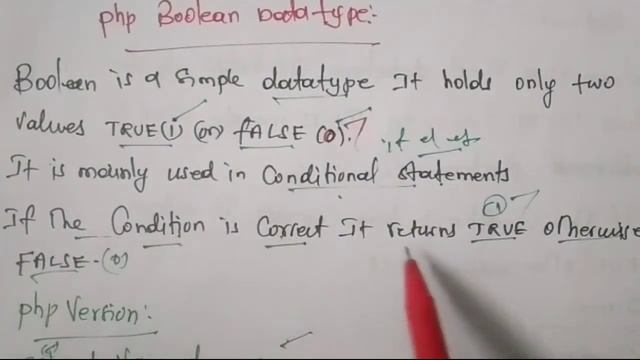 php Boolean Datatype:-
Boolean is a simple datatype It holds only two
values TRUE(1) (or) FALSE (0).
It is mainly used in Conditional statements
If The Condition is Correct It returns TRUE otherwise
(1)
FALSE.(0)
php Version: